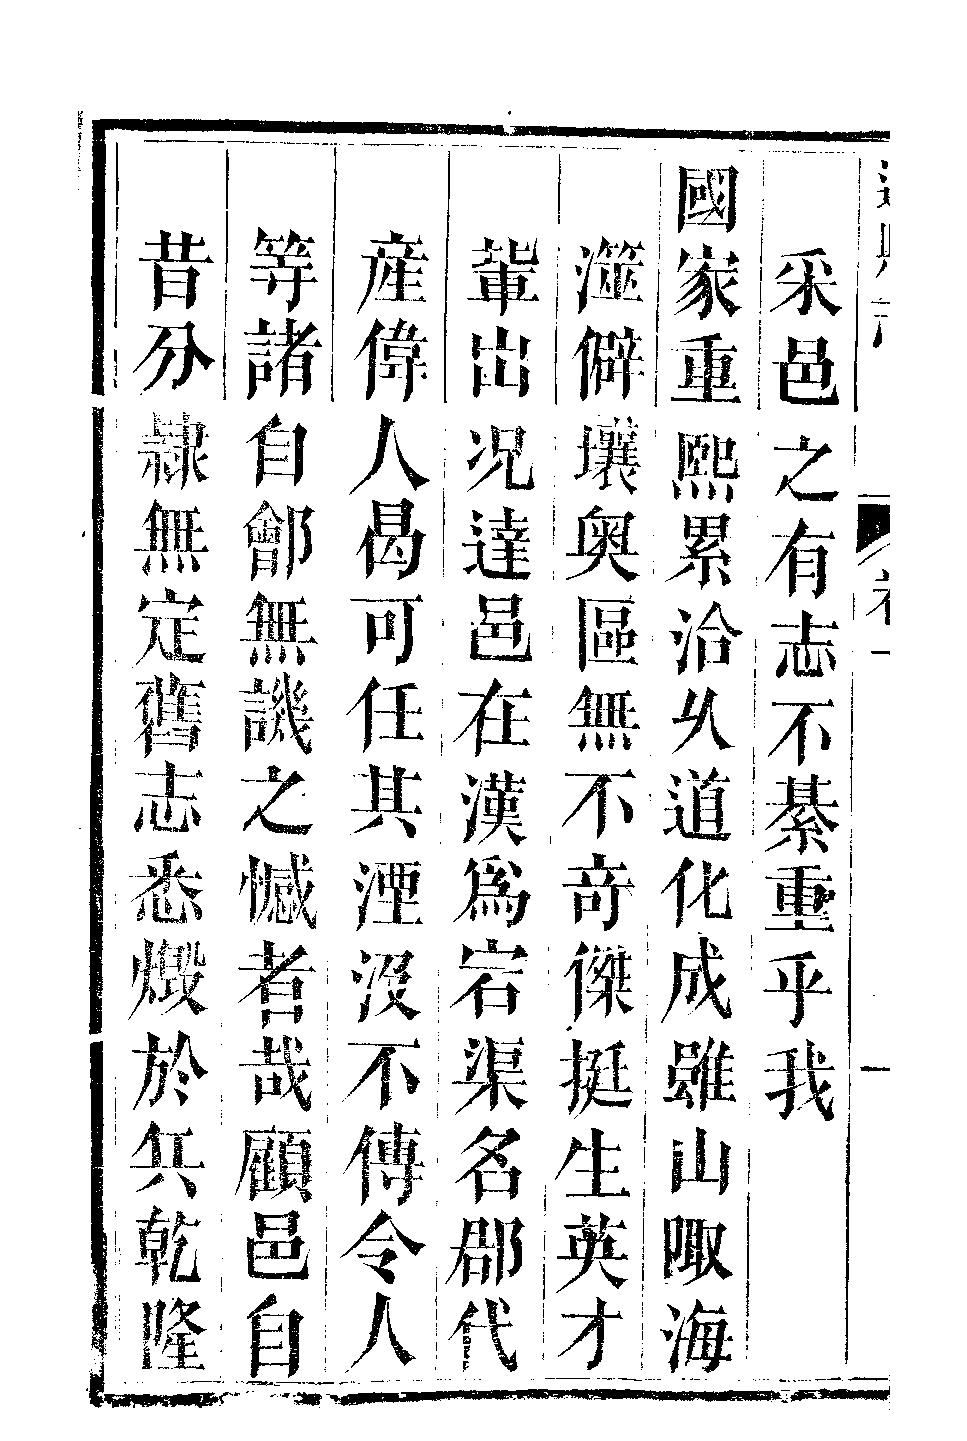 采邑之有志不綦重乎我
國家重熙累洽久道化成雖山陬海
澨僻壤奧區無不竒傑挺生英才
輩出况達邑在漢爲宕渠名郡代
産偉人曷可任其湮沒不傳令人
等諸自鄶無譏之憾者哉顧邑自
昔分隷無定舊志悉燬於兵乾隆